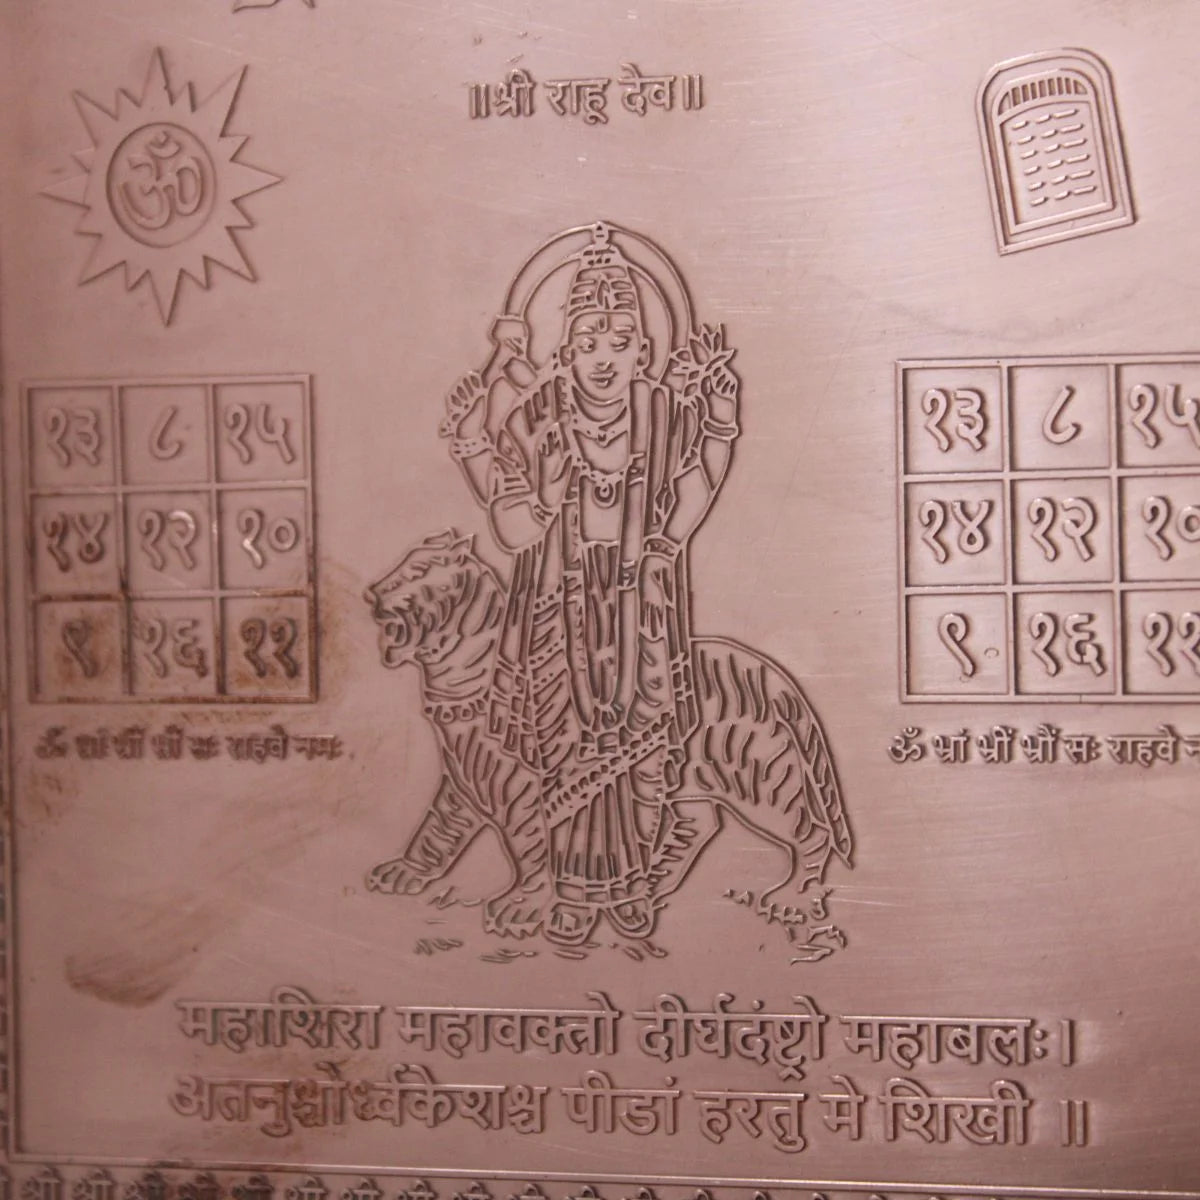 ॥श्री राहू देव॥
ॐ
१३ ८ १५
१४ १२ १०
९ १६ ११
ॐ भ्रां भ्रीं भ्रौं सः राहवे नमः
१३ ८ १५
१४ १२ १०
९ १६ ११
ॐ भ्रां भ्रीं भ्रौं सः राहवे
महाशिरा महावक्त्रो दीर्घदंष्ट्रो महाबलः।
अतनुर्श्चोर्ध्वकेशश्च पीडां हरतु मे शिखी ॥
श्री श्री श्री श्री श्री श्री श्री श्री श्री